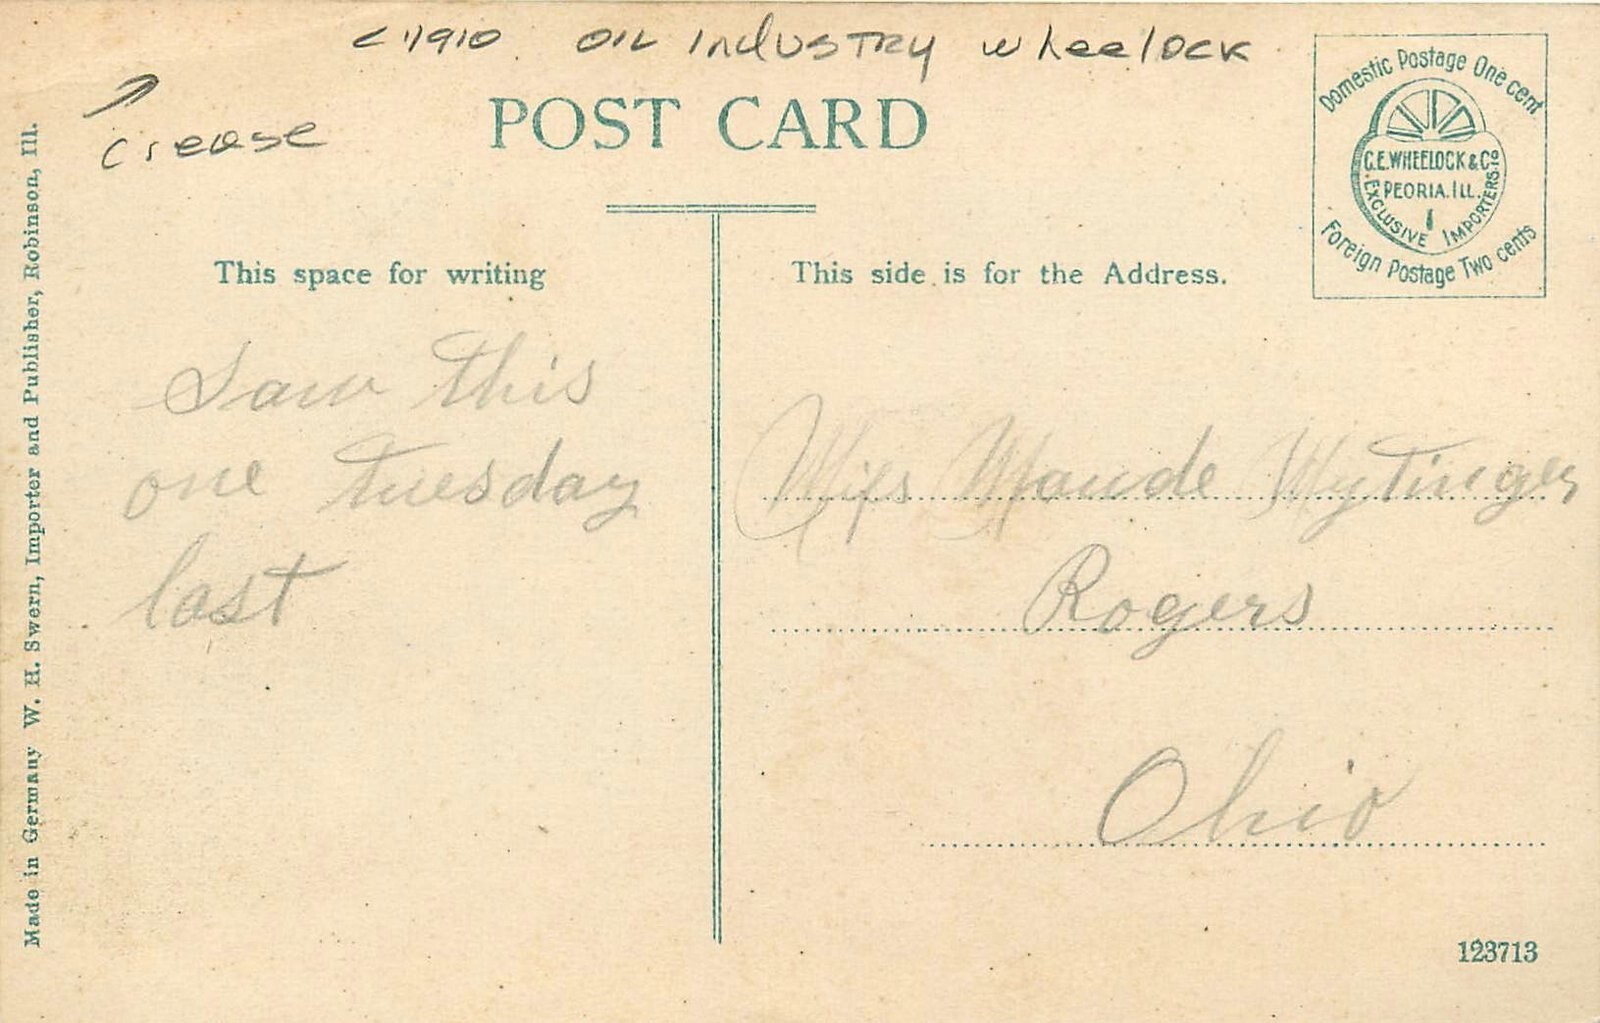 c1910 OIL Industry Wheelock
Crease
POST CARD
Domestic Postage One cent
C.E. WHEELOCK & Co
PEORIA. ILL.
EXCLUSIVE IMPORTERS.
Foreign Postage Two cents
This space for writing
This side is for the Address.
Saw this
one tuesday
last
Miss Maude Mytinger
Rogers
Ohio
123713
Made in Germany W. H. Swern, Importer and Publisher, Robinson, Ill.